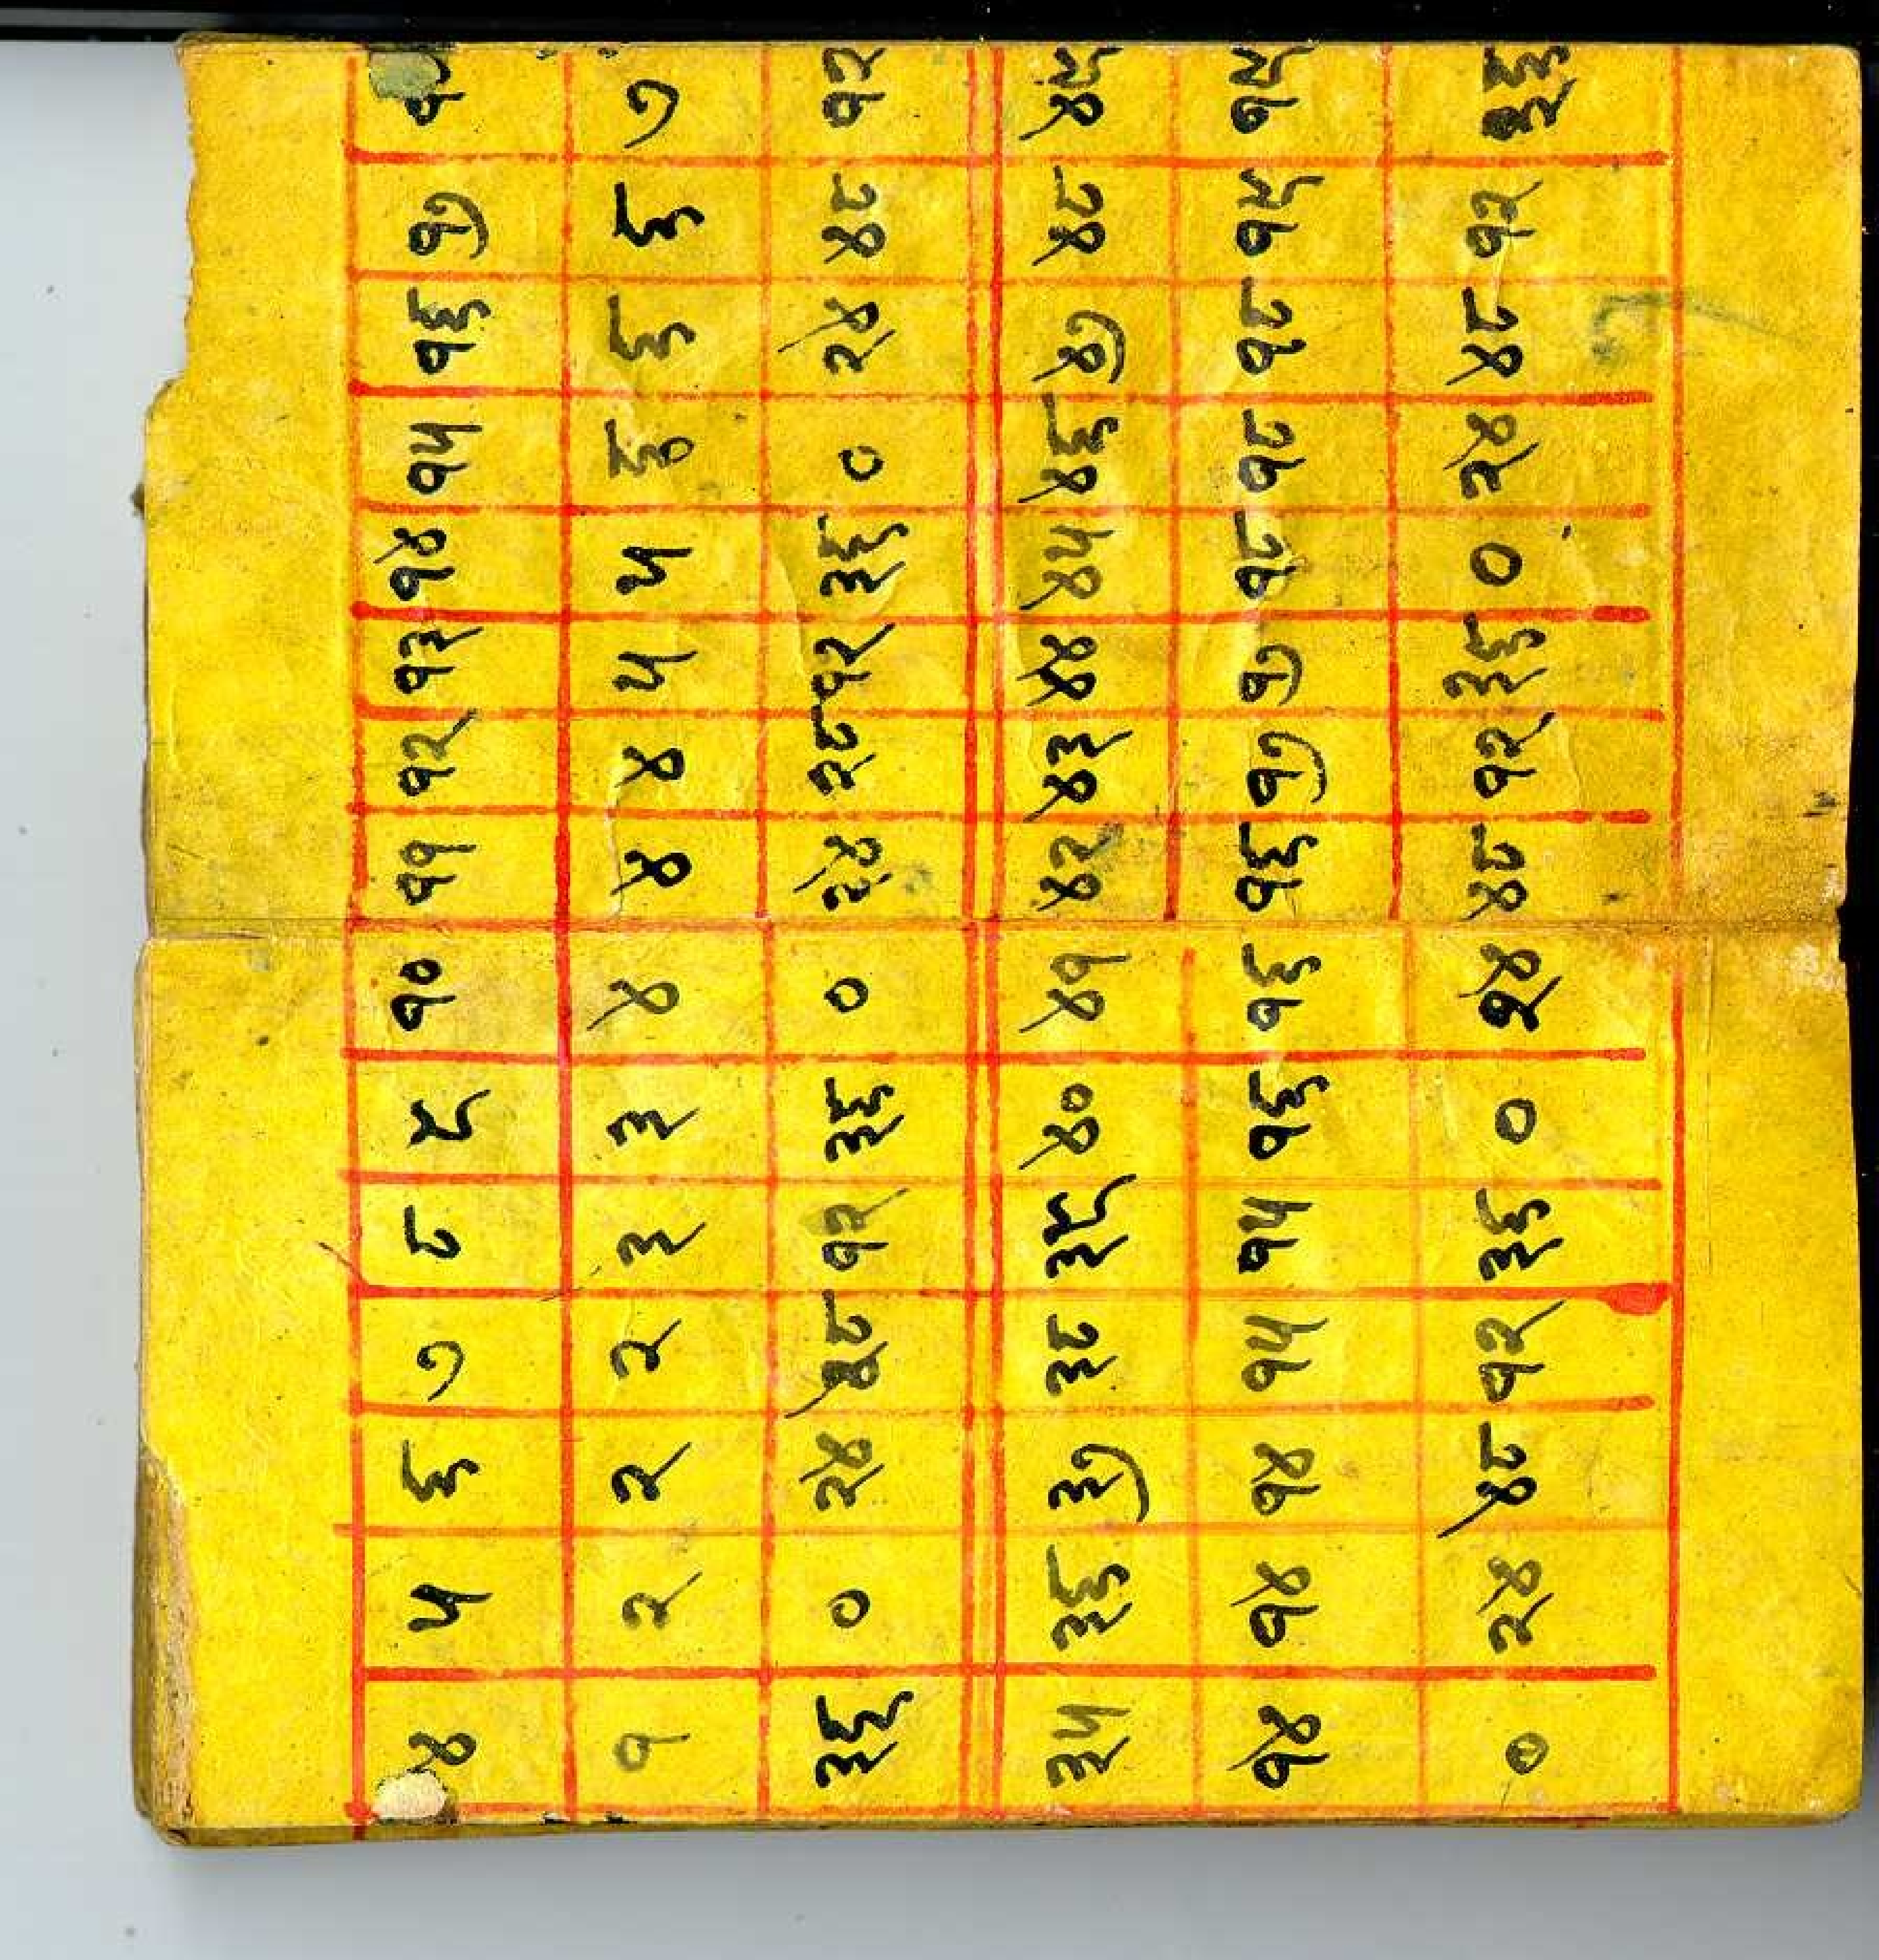 ४ ५ ६ ७ ८ ९ १० ११ १२ १३ १४ १५ १६ १७
१ २ २ २ ३ ३ ४ ४ ४ ५ ५ ६ ६ ६ ७
३६ ० २४ ४८ १२ ३६ ० २४ ४८ १२ ३६ ० २४ ४८ १२
३५ ३६ ३७ ३८ ३९ ४० ४१ ४२ ४३ ४४ ४५ ४६ ४७ ४८ ४९
१४ १४ १४ १५ १५ १६ १६ १६ १७ १७ १८ १८ १८ १९ १९
० २४ ४८ १२ ३६ ० २४ ४८ १२ ३६ ० २४ ४८ १२ ३६